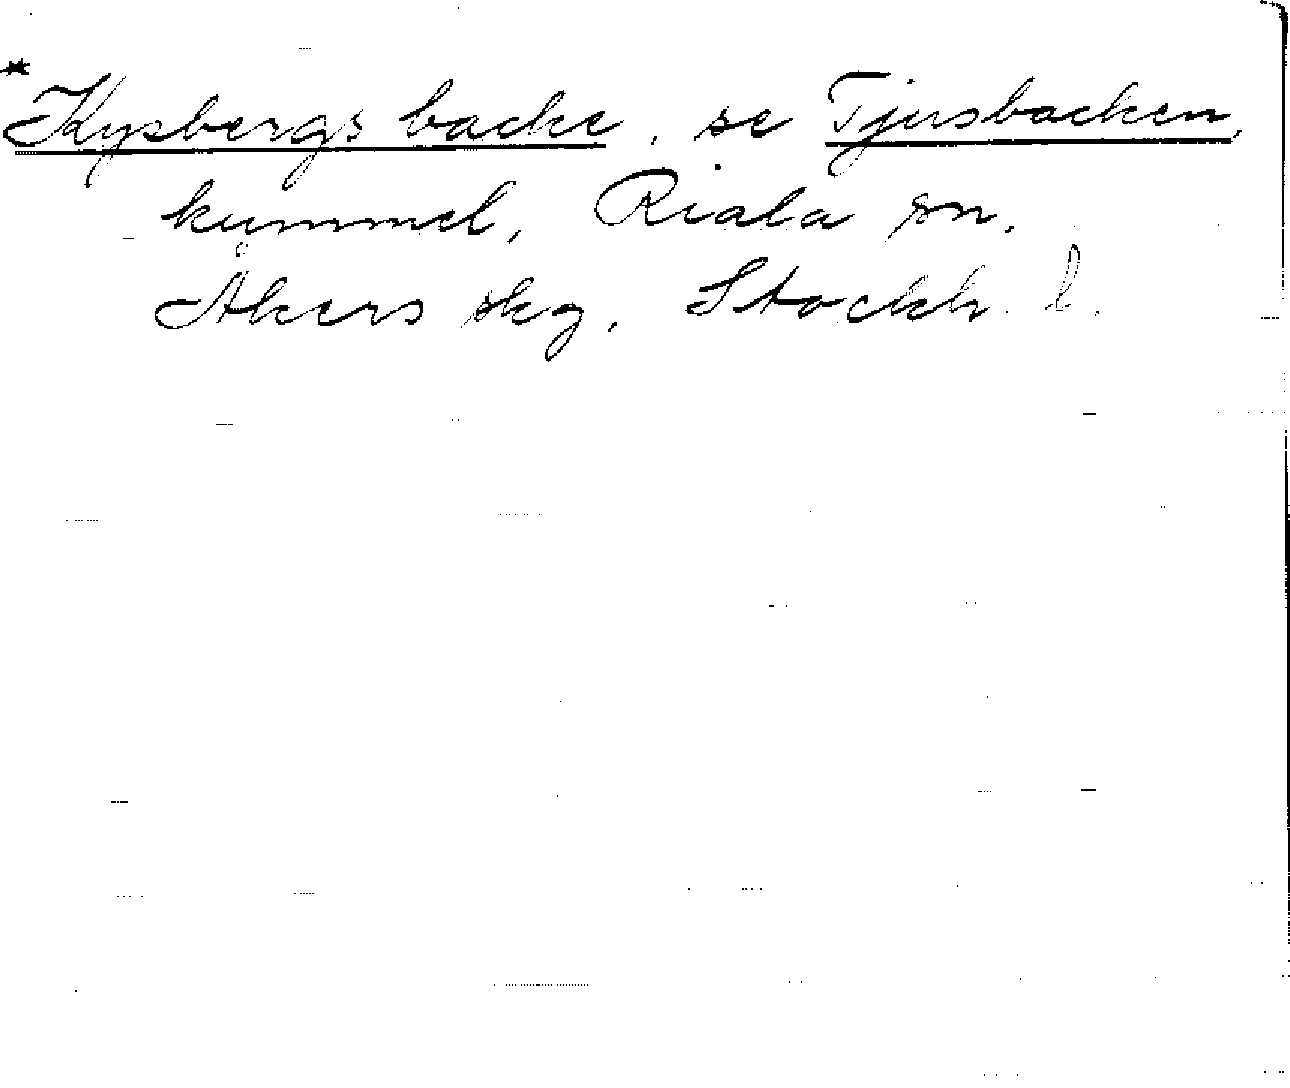 *Kysbergs backe, se Tjusbacken,
kummel, Riala sn,
Åkers skg, Stockh. l.